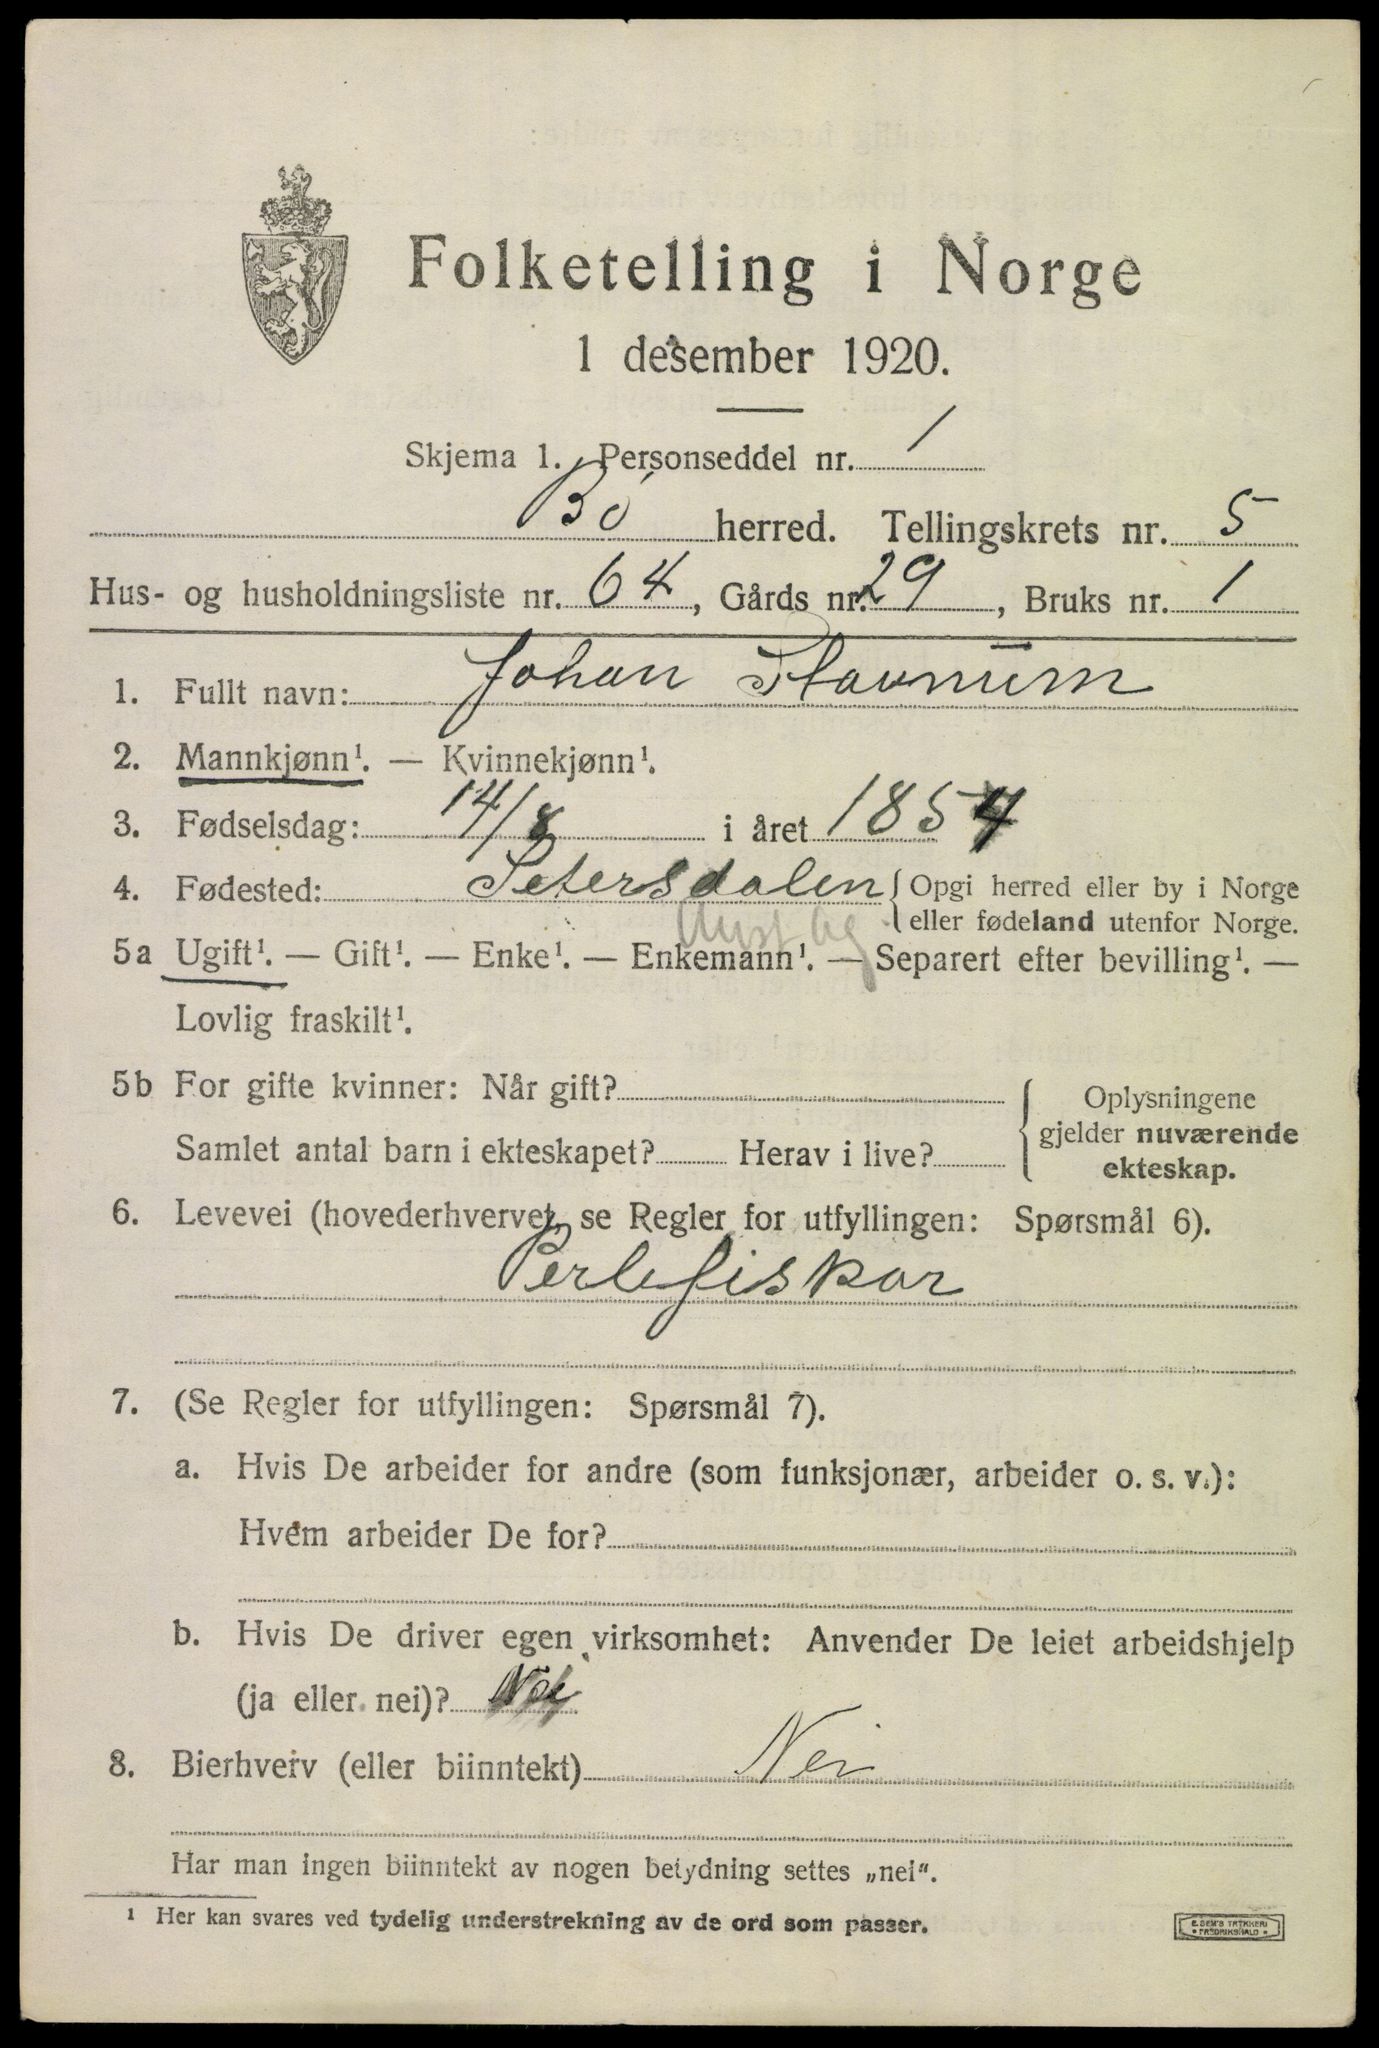 Folketelling i Norge
1 desember 1920.
Skjema 1. Personseddel nr. 1
Bó herred. Tellingskrets nr. 5
Hus- og husholdningsliste nr. 64, Gårds nr. 29, Bruks nr. 1
1. Fullt navn: Johan Stavnum
2. Mannkjønn¹. — Kvinnekjønn¹.
3. Fødselsdag: 14/8 i året 1854
4. Fødested: Setersdalen { Opgi herred eller by i Norge
eller fødeland utenfor Norge.
Aust Ag
5a Ugift¹. — Gift¹. — Enke¹. — Enkemann¹. — Separert efter bevilling¹. —
Lovlig fraskilt¹.
5b For gifte kvinner: Når gift?
Samlet antal barn i ekteskapet? Herav i live?
{ Oplysningene
gjelder nuværende
ekteskap.
6. Levevei (hovederhvervet, se Regler for utfyllingen: Spørsmål 6).
Perlefiskar
7. (Se Regler for utfyllingen: Spørsmål 7).
a. Hvis De arbeider for andre (som funksjonær, arbeider o. s. v.):
Hvem arbeider De for?
b. Hvis De driver egen virksomhet: Anvender De leiet arbeidshjelp
(ja eller nei)? Nei
8. Bierhverv (eller biinntekt) Nei
Har man ingen biinntekt av nogen betydning settes „nei".
¹ Her kan svares ved tydelig understrekning av de ord som passer.
E. SEM'S TRYKKERI
* FREDRIKSHALD *